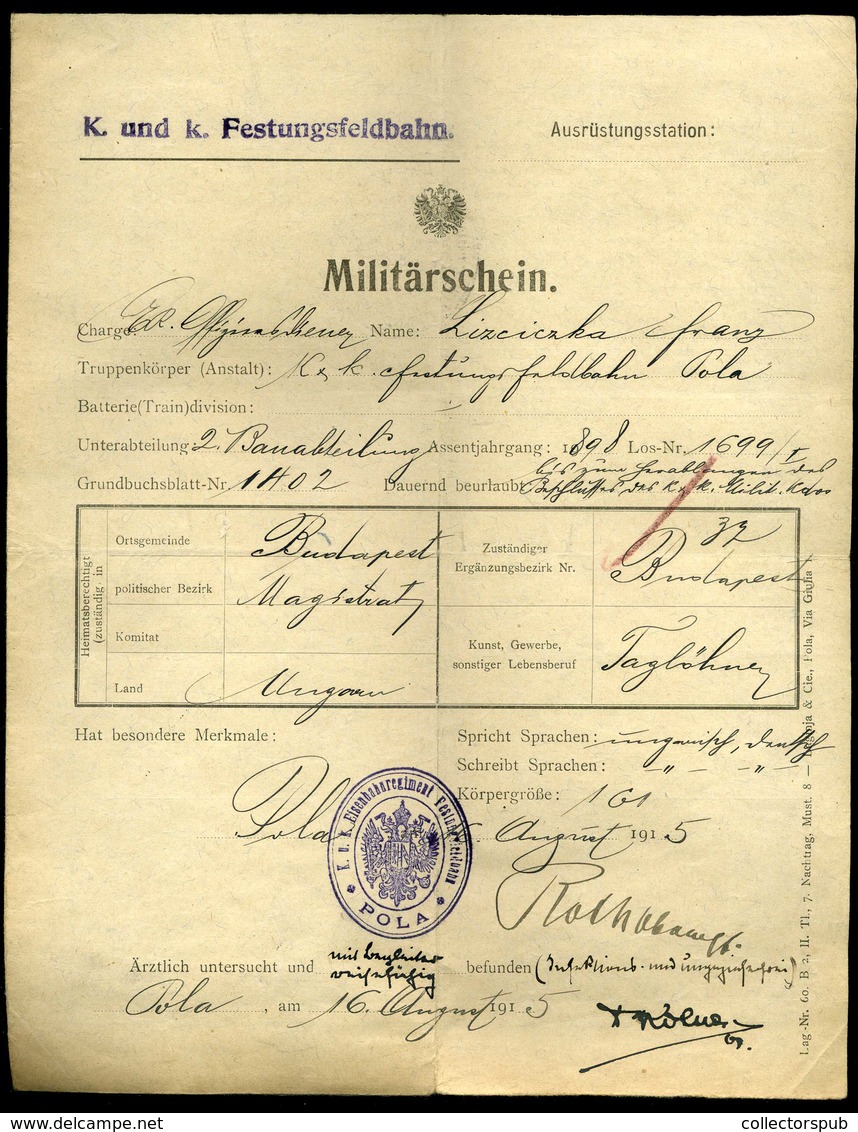 K. und k. Festungsfeldbahn.
Ausrüstungsstation:
Militärschein.
Charge: Ed. Offiziersdiener Name: Lizciczka Franz
Truppenkörper (Anstalt): K. k. Festungsfeldbahn Pola
Batterie(Train)division:
Unterabteilung 2. Bauabteilung Assentjahrgang: 1898 Los-Nr. 1699/I
bis zum Herablangen des
Grundbuchsblatt-Nr. 1402 Dauernd beurlaubt Beschlusses des k. u. k. Milit. Kdos
Heimatsberechtigt (zuständig) in
Ortsgemeinde Budapest
politischer Bezirk Magistrat
Komitat
Land Ungarn
Zuständiger Ergänzungsbezirk Nr. 32 Budapest
Kunst, Gewerbe, sonstiger Lebensberuf Taglöhner
Hat besondere Merkmale:
Spricht Sprachen: ungarisch, deutsch
Schreibt Sprachen: -„- -„-
Körpergröße: 161
Pola August 1915
K. u. K. Eisenbahnregiment Festungsfeldbahn
POLA
Ärztlich untersucht und mit Begleiter reisefähig befunden (Infektions- und ungezieferfrei)
Pola, am 16. August 1915
Lag.-Nr. 60. B 2, II. Tl., 7. Nachtrag, Must. 8 — & Cie., Pola, Via Giulia 1.
collectorspub
delcampe.net